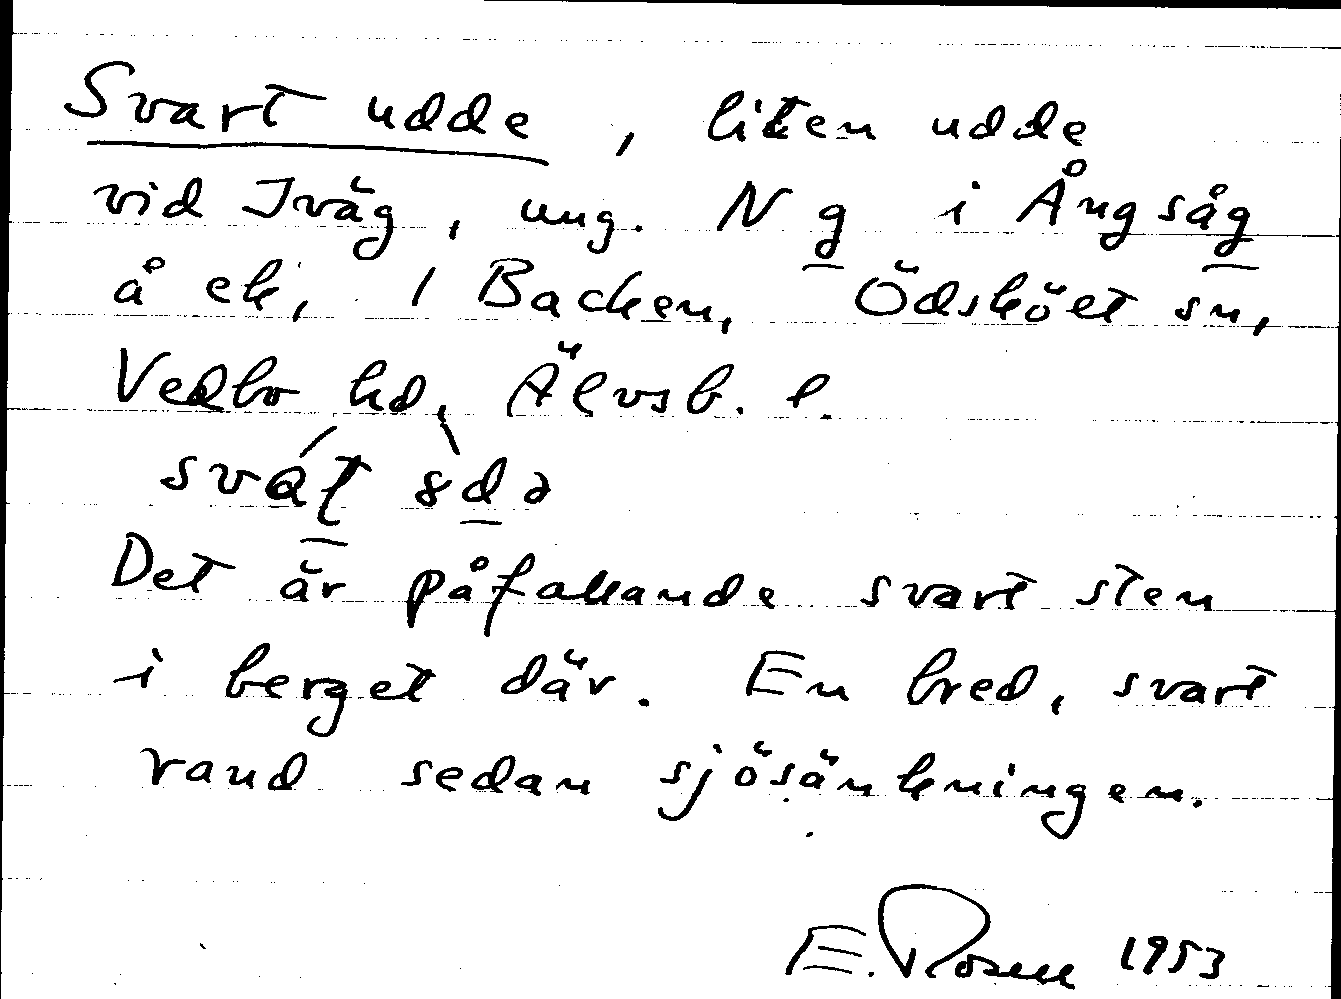 Svart udde, liten udde
vid Iväg, ung. N g i Ångsåg
å ek, 1 Backen, Ödsköet sn,
Vedbo hd, Älvsb. l.
Det är påfallande svart sten
i berget där. En bred, svart
rand sedan sjösänkningen.
E. Rosell 1953